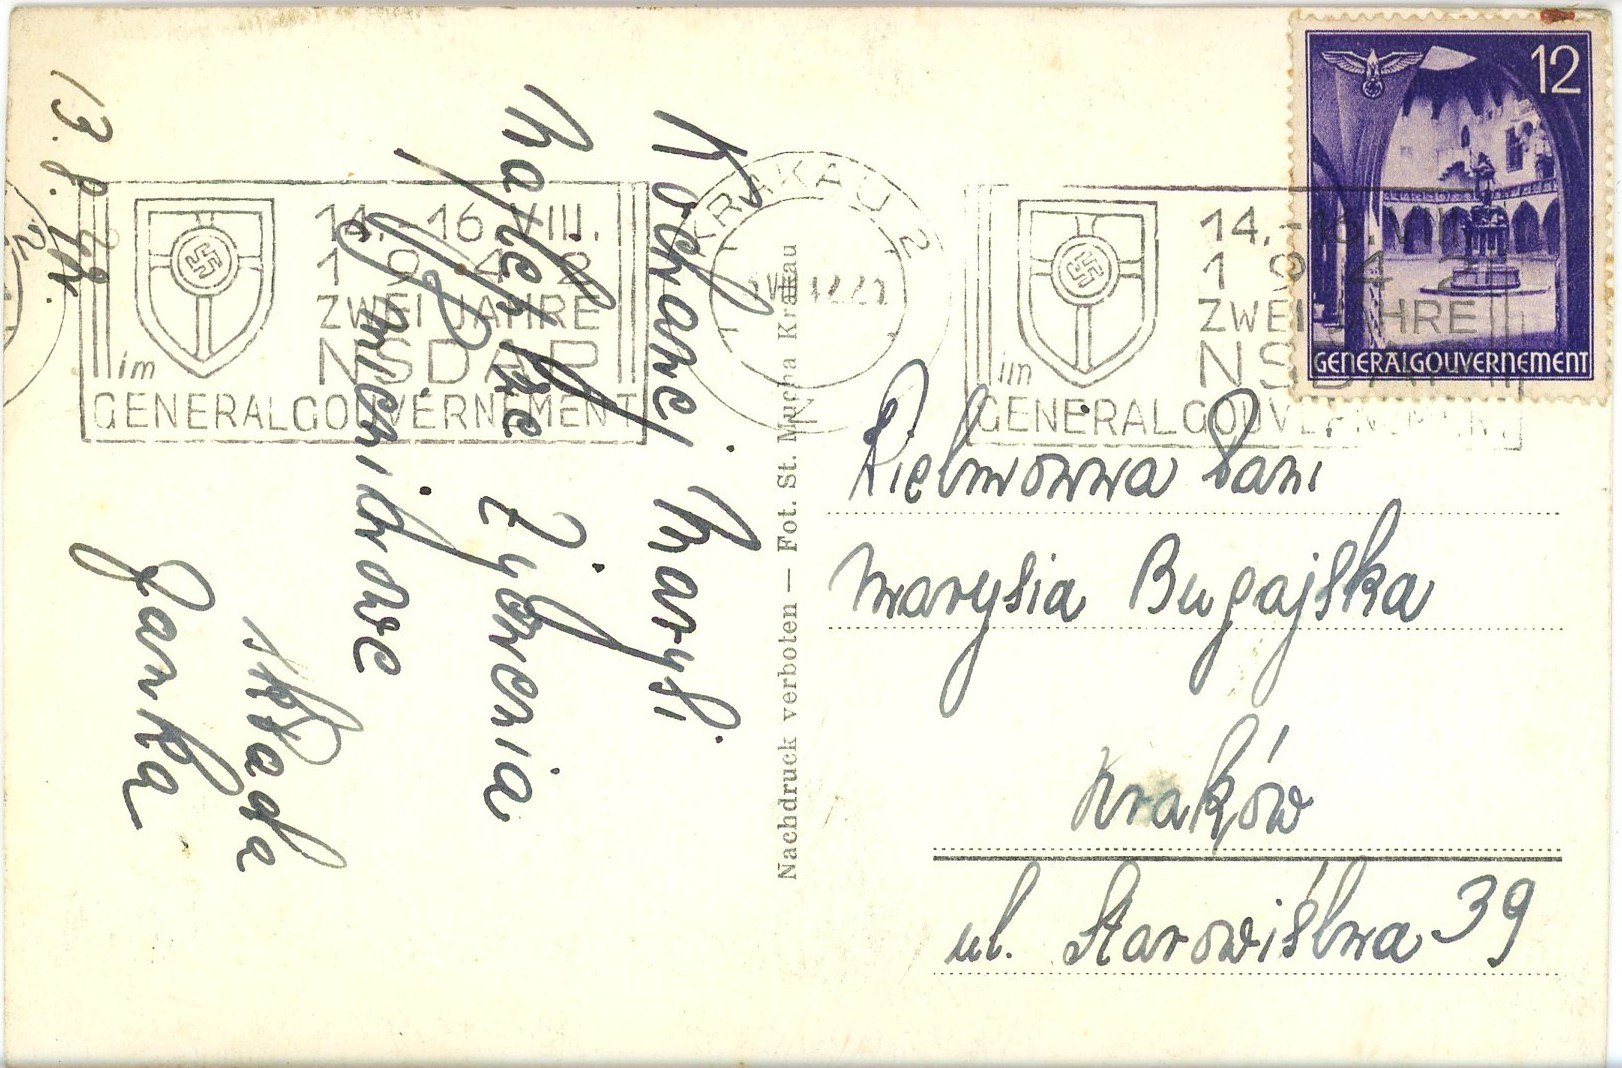 13. 8. 42r.
Kochanej Marysi
Najlepsze życzenia
imieninowe
składa
Janka
KRAKAU 2
14.-16. VIII.
1942
ZWEI JAHRE
NSDAP
im
GENERALGOUVERNEMENT
14.-16. VIII.
1942
ZWEI JAHRE
NSDAP
im
GENERALGOUVERNEMENT
12
GENERALGOUVERNEMENT
Nachdruck verboten — Fot. St. Mucha Krakau
Wielmożna Pani
Marysia Bugajska
Kraków
ul. Starowiślna 39